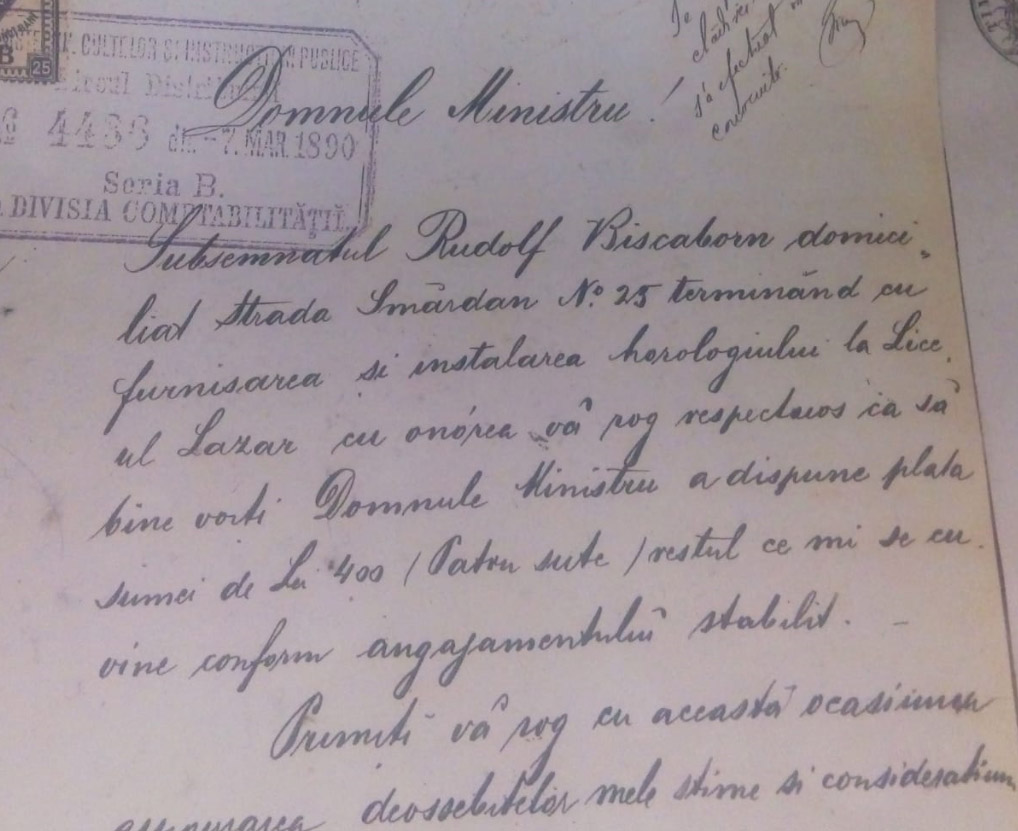 25
CULTELOR SI INSTRUCTIUNII PUBLICE
4436 din -7. MAR 1890
Seria B.
DIVISIA COMPTABILITĂŢII.
Domnule Ministru!
s'a efectuat
Subsemnatul Rudolf Biscaborn domici„
liat strada Smârdan No. 25 terminând cu
furnisarea si instalarea horologiului la Lice.
ul Lazar cu onórea vâ rog respectuos ca sâ
bine voiti Domnule Ministru a dispune plata
sumei de Lei 400 / Patru sute / restul ce mi se cu.
vine conform angajamentului stabilit. –
Primiti vâ rog cu aceastâ ocasiunea
deossebitelor mele stime si consideratiuni